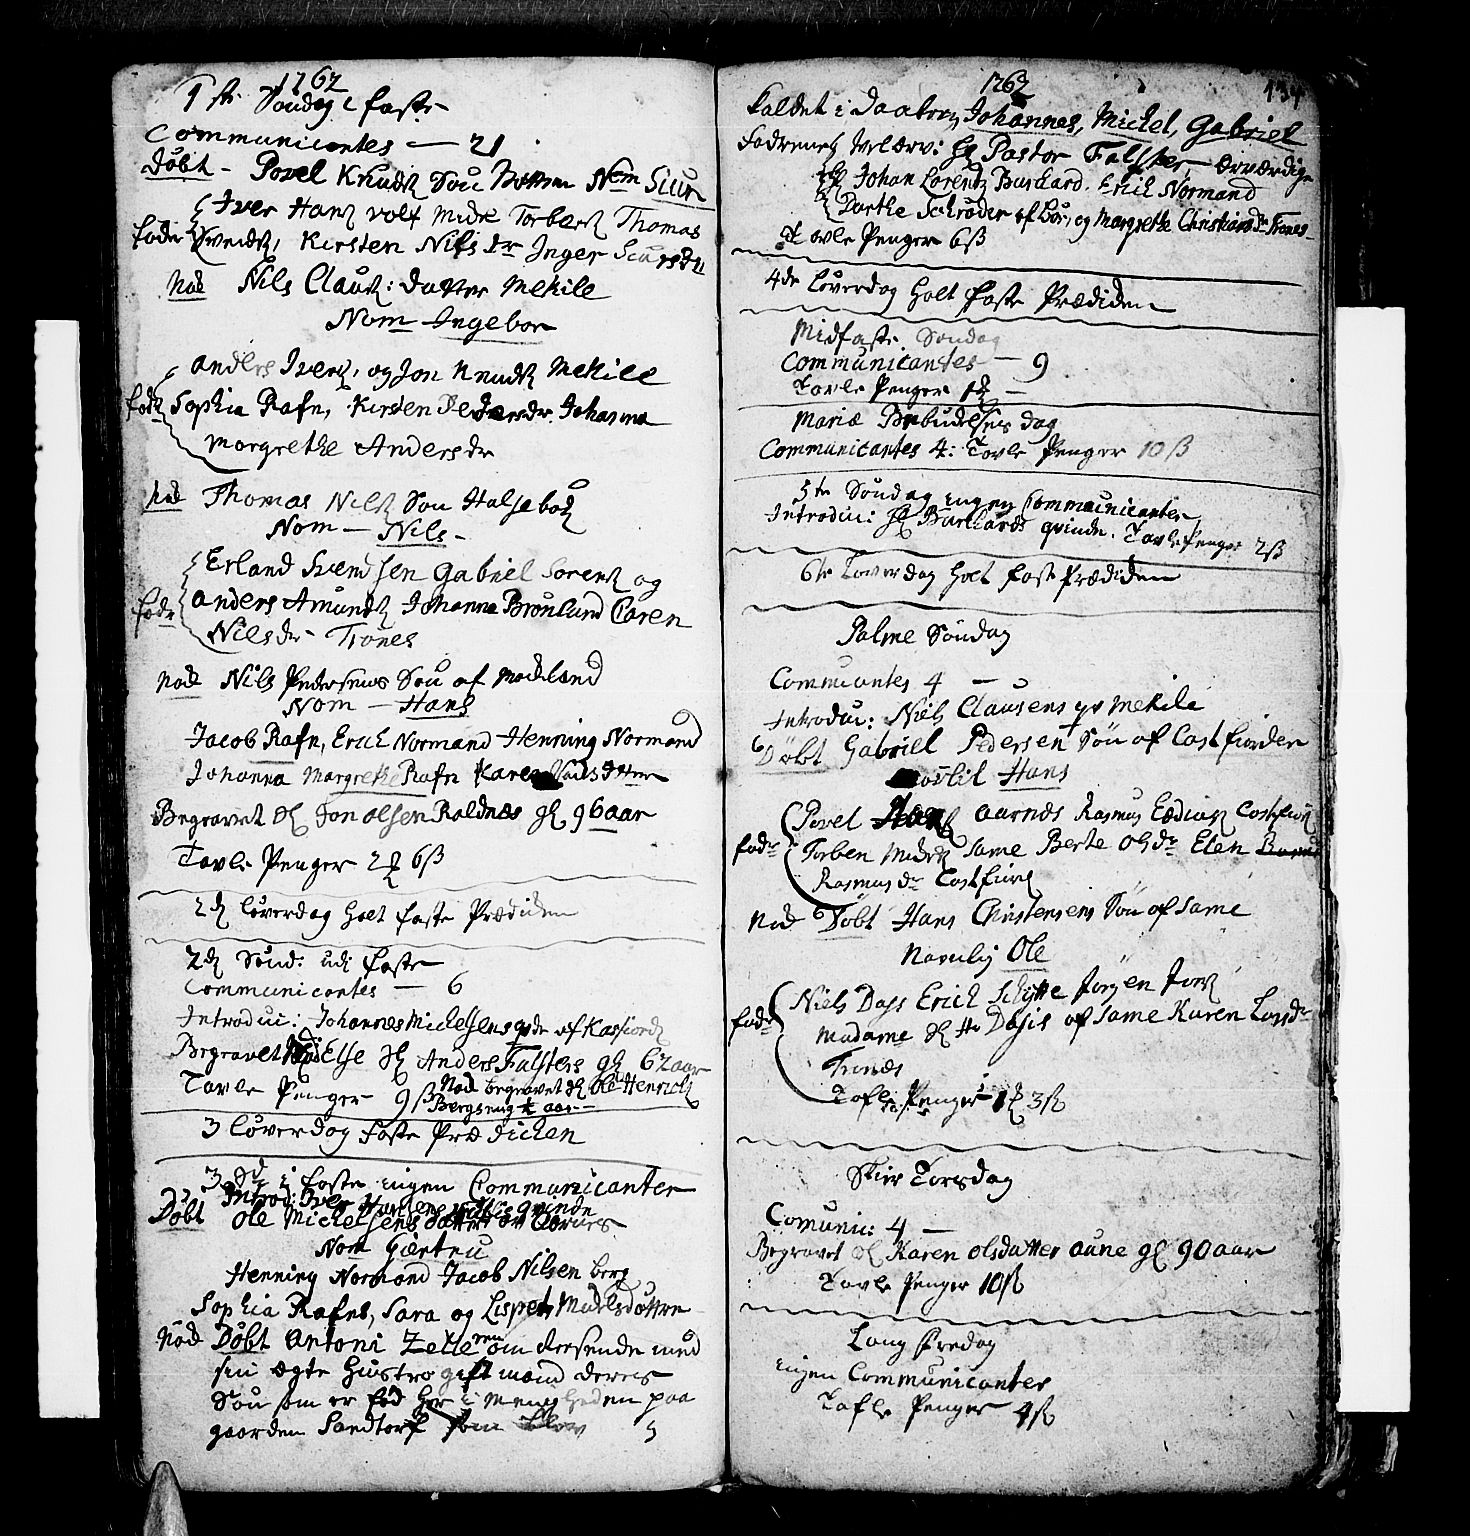 1762
1ste Søndag i faste
Communicantes — 21
Døbt - Povel Knudz Søn Nom Siur
Iver Hanz Torberz Thomas
fadr Svendz, Kirsten Nilsdr Inger Siursdr
Nod Nils Clauz: datter Mekile
Nom Ingebor
anders Iverz, og Jon Knudz Mekile
fadr Sophia Rafn, Kirsten Pedersdr. Johanna
Morgrethe Andersdr
Nod Thomas Nilz Søn Halsebod
Nom — Nils -
Erland Svendsen Gabriel Sorenz og
fadr anders Amundz Johanna Brønlund Caren
Nilsdr - Trones
Nod Nils Pedersens Søn af Modeland
Nom — Hans
Jacob Rafn, Erich Normand Henning Normand
Johanna Margrethe Rafn Karen Nilsdatter
Begravet Jon Olsen Roldnes gl 96 aar
Tavle Penger 2 6ß
2d Løverdag Holt faste Prædiken
2d Sønd: udi faste
Communicantes — 6
Introdui: Johannes Michelsens qvde af Kasfiord
Begravet Else Anders Falsters gl 62 aar
Tavle Penger 9ß Nod begravet Ole Henrich
Bergseng aar
3 Løverdag faste Prædicken
3 Sd i faste ingen Communicanter
Introd: Iver Hansens qvinde
Døbt Ole Michelsens datter
Nom Giertru
Henning Normand Jacob Nilsen berg
Sophia Rafns, Sara og Lispeth Michelsdøttre
Nod Døbt Antoni Zelle om dersende med
sin ægte Hustro gift mand deres
Søn som er fød her i Menigheden paa
gaarden Sandtorf som blev
1762
134
kaldet i daaben Johannes, Michel, Gabriel
Fadrene Velærv: Hr Pastor Falster, ærværdige
Hr Johan Lorentz Burchard. Erich Normand
Dorthe Schrøder af Bør, og Margrethe Christiansdr Trones
Tavle Penger 6ß
4de Løverdag Holt faste Prædiken
Midfaste Søndag
Communicantes — 9
Tavle Penger 1
Mariæ Bebudelses dag
Communicantes 4: Tavle Penger 10ß
5te Søndag ingen Communicanter
Introdui: Hr Burchards qvinde. Tavle Penger 2ß
6te Løverdag Holt faste Prædiken
Palme Søndag
Commucantes 4 —
Introdui: Niels Clausens qv Mekile
Døbt Gabriel Pedersen Søn af Costfiorden
Hans
Povel aarnes Rasmus Costfiord
fadr Torben same Berte Olsdr Elen
Rasmusdr Costfiord
Nod Døbt Hans Christensens Søn af same
Navnlig Ole
Niels Dass Erich Schytte Jørgen
fadr Madame af same Karen
Trones
Tafle Penger 1 3ß
Skier Torsdag
Comunic: 4 —
Begravet Karen Olsdatter aune gl 90 aar
Tavle Penger 10ß
Lang fredag
ingen Communicanter
Tafle Penger 4ß